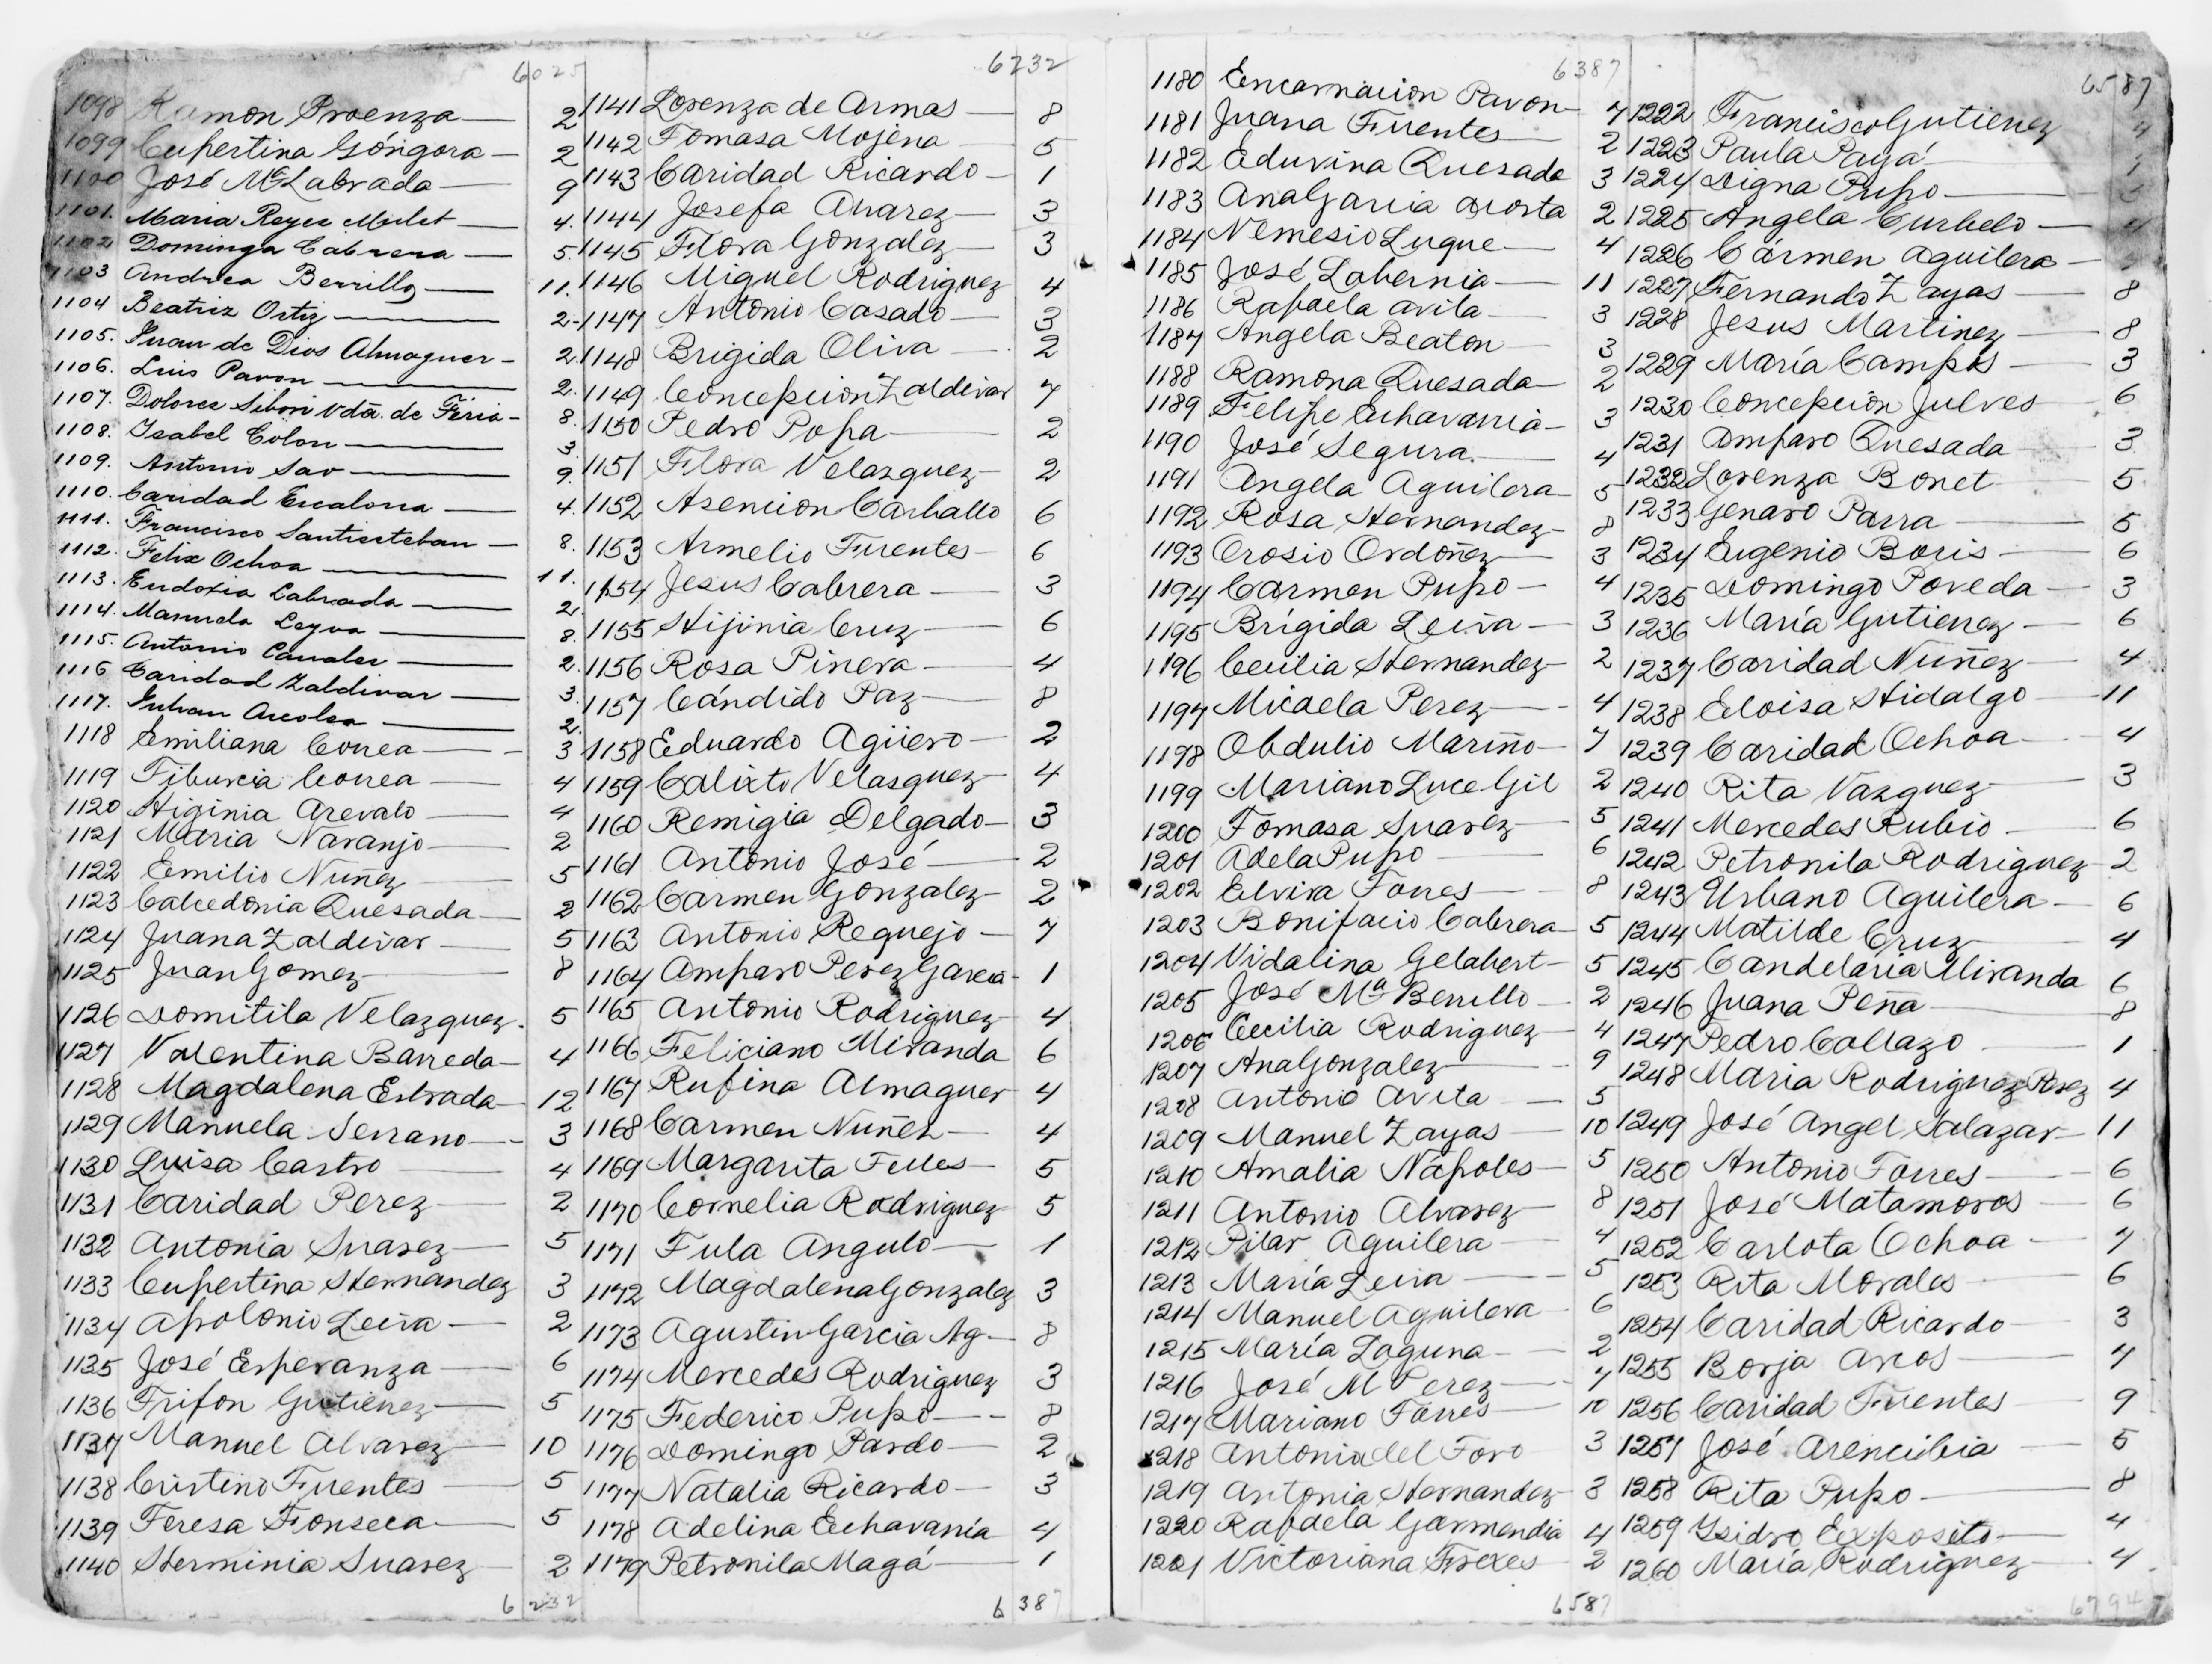 6025
1098 Ramon Proenza 2
1099 Cupertina Góngora 2
1100 José Mª Labrada 9
1101. Maria Reyes Mulet 4.
1102 Dominga Cabrera 5.
1103 Andrea Berrillo 11.
1104 Beatriz Ortiz 2
1105. Juan de Dios Almaguer 2.
1106. Luis Pavon 2.
1107. Dolores Vda. de Feria 8.
1108. Isabel Colon 3.
1109. Antonio Sao 9.
1110. Caridad Escalona 4.
1111. Francisco Santiesteban 8.
1112. Felix Ochoa 11.
1113. Eudoxia Labrada 2.
1114. Manuela Leyva 8.
1115. Antonio 2.
1116 Caridad Zaldivar 3.
1117. Julian 2.
1118 Emiliana Correa 3
1119 Tiburcia Correa 4
1120 Higinia Arevalo 4
1121 Maria Naranjo 2
1122 Emilio Nuñez 5
1123 Calcedonia Quesada 2
1124 Juana Zaldivar 5
1125 Juan Gomez 8
1126 Domitila Velazquez. 5
1127 Valentina Barreda 4
1128 Magdalena Estrada 12
1129 Manuela Serrano 3
1130 Luisa Castro 4
1131 Caridad Perez 2
1132 Antonia Suarez 5
1133 Cupertina Hernandez 3
1134 Apolonio Leiva 2
1135 José Esperanza 6
1136 Trifon Gutierrez 5
1137 Manuel Alvarez 10
1138 Cristino Fuentes 5
1139 Teresa Fonseca 5
1140 Herminia Suarez 2
6232
6232
1141 Lorenza de Armas 8
1142 Tomasa Mojena 5
1143 Caridad Ricardo 1
1144 Josefa Alvarez 3
1145 Flora Gonzalez 3
1146 Miguel Rodriguez 4
1147 Antonio Casado 3
1148 Brigida Oliva 2
1149 Concepcion Zaldivar 7
1150 Pedro Popa 2
1151 Flora Velazquez 2
1152 Asencion Carballo 6
1153 Armelio Fuentes 6
1154 Jesus Cabrera 3
1155 Hijinia Cruz 6
1156 Rosa Pinera 4
1157 Cándido Paz 8
1158 Eduardo Agüero 2
1159 Calixto Velasquez 4
1160 Remigia Delgado 3
1161 Antonio José 2
1162 Carmen Gonzalez 2
1163 Antonio Requejo 7
1164 Amparo Perez Garcia 1
1165 Antonio Rodriguez 4
1166 Feliciano Miranda 6
1167 Rufina Almaguer 4
1168 Carmen Nuñez 4
1169 Margarita Telles 5
1170 Cornelia Rodriguez 5
1171 Tula Angulo 1
1172 Magdalena Gonzalez 3
1173 Agustin Garcia Ag 8
1174 Mercedes Rodriguez 3
1175 Federico Pupo 8
1176 Domingo Pardo 2
1177 Natalia Ricardo 3
1178 Adelina Echavarría 4
1179 Petronila Magá 1
6387
6387
1180 Encarnacion Pavon 7
1181 Juana Fuentes 2
1182 Eduvina Quesada 3
1183 Ana Garcia Acosta 2
1184 Nemesio Luque 4
1185 José Labernia 11
1186 Rafaela Avila 3
1187 Angela Beaton 3
1188 Ramona Quesada 2
1189 Felipe Echavarria 3
1190 José Segura 4
1191 Angela Aguilera 5
1192 Rosa Hernandez 8
1193 Orosio Ordoñez 3
1194 Carmen Pupo 4
1195 Brígida Leiva 3
1196 Cecilia Hernandez 2
1197 Micaela Perez 4
1198 Obdulio Mariño 7
1199 Mariano Luce Gil 2
1200 Tomasa Suarez 5
1201 Adela Pupo 6
1202 Elvira Torres 8
1203 Bonifacio Cabrera 5
1204 Vidalina Gelabert 5
1205 José Mª Berrillo 2
1206 Cecilia Rodriguez 4
1207 Ana Gonzalez 9
1208 Antonio Avila 5
1209 Manuel Zayas 10
1210 Amalia Napoles 5
1211 Antonio Alvarez 8
1212 Pilar Aguilera 4
1213 María Leiva 5
1214 Manuel Aguilera 6
1215 María Laguna 2
1216 José M Perez 7
1217 Mariano Torres 10
1218 Antonia del Toro 3
1219 Antonia Hernandez 3
1220 Rafaela Garmendia 4
1221 Victoriana Frexes 2
6587
6587
1222 Francisco Gutierrez 4
1223 Paula Payá 1
1224 Digna Pupo
1225 Angela Curbelo 4
1226 Cármen Aguilera
1227 Fernando Zayas 8
1228 Jesus Martinez 8
1229 María Campos 3
1230 Concepcion Julves 6
1231 Amparo Quesada 3
1232 Lorenza Bonet 5
1233 Genaro Parra 5
1234 Eugenio Boris 6
1235 Domingo Poveda 3
1236 María Gutierrez 6
1237 Caridad Nuñez 4
1238 Eloisa Hidalgo 11
1239 Caridad Ochoa 4
1240 Rita Vazquez 3
1241 Mercedes Rubio 6
1242 Petronila Rodriguez 2
1243 Urbano Aguilera 6
1244 Matilde Cruz 4
1245 Candelaria Miranda 6
1246 Juana Peña 8
1247 Pedro Collazo 1
1248 Maria Rodriguez Perez 4
1249 José Angel Salazar 11
1250 Antonio Torres 6
1251 José Matamoros 6
1252 Carlota Ochoa 7
1253 Rita Morales 6
1254 Caridad Ricardo 3
1255 Borja Arcos 7
1256 Caridad Fuentes 9
1257 José Arencibia 5
1258 Rita Pupo 8
1259 Ysidro Exposito 4
1260 María Rodriguez 4
6794